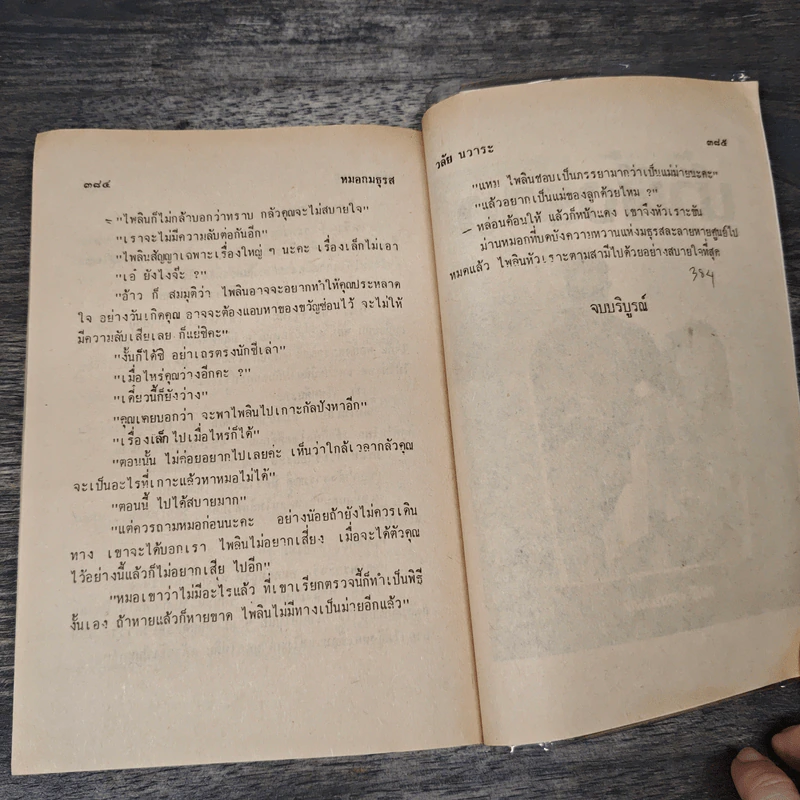 ๓๘๔ หมอกมธุรส
"ไพลินก็ไม่กล้าบอกว่าทราบ กลัวคุณจะไม่สบายใจ"
"เราจะไม่มีความลับต่อกันอีก"
"ไพลินสัญญาเฉพาะเรื่องใหญ่ ๆ นะคะ เรื่องเล็กไม่เอา
"เอ๋ ยังไงจ๊ะ ?"
"อ้าว ก็ สมมุติว่า ไพลินอาจจะอยากทำให้คุณประหลาด
ใจ อย่างวันเกิดคุณ อาจจะต้องแอบหาของขวัญซ่อนไว้ จะไม่ให้
มีความลับเสียเลย ก็แย่ซิคะ"
"งั้นก็ได้ซิ อย่าเถรตรงนักซีเล่า"
"เมื่อไหร่คุณว่างอีกคะ ?"
"เดี๋ยวนี้ก็ยังว่าง"
"คุณเคยบอกว่า จะพาไพลินไปเกาะกัลปังหาอีก"
"เรื่องเล็กไปเมื่อไหร่ก็ได้"
"ตอนนั้น ไม่ค่อยอยากไปเลยค่ะ เห็นว่าใกล้เวลากลัวคุณ
จะเป็นอะไรที่เกาะแล้วหาหมอไม่ได้"
"ตอนนี้ ไปได้สบายมาก"
"แต่ควรถามหมอก่อนนะคะ อย่างน้อยถ้ายังไม่ควรเดิน
ทาง เขาจะได้บอกเรา ไพลินไม่อยากเสี่ยง เมื่อจะได้ตัวคุณ
ไว้อย่างนี้แล้วก็ไม่อยากเสีย ไปอีก"
"หมอเขาว่าไม่มีอะไรแล้ว ที่เขาเรียกตรวจนี้ก็ทำเป็นพิธี
งั้นเอง ถ้าหายแล้วก็หายขาด ไพลินไม่มีทางเป็นม่ายอีกแล้ว"
วลัย นวาระ ๓๘๕
"แหม ไพลินชอบเป็นภรรยามากว่าเป็นแม่ม่ายนะคะ"
"แล้วอยากเป็นแม่ของลูกด้วยไหม ?"
หล่อนค้อนให้ แล้วก็หน้าแดง เขาจึงหัวเราะขัน
ม่านหมอกที่บดบังความหวานแห่งมธุรสละลายหายศูนย์ไป
หมดแล้ว ไพลินหัวเราะตามสามีไปด้วยอย่างสบายใจที่สุด
384
จบบริบูรณ์